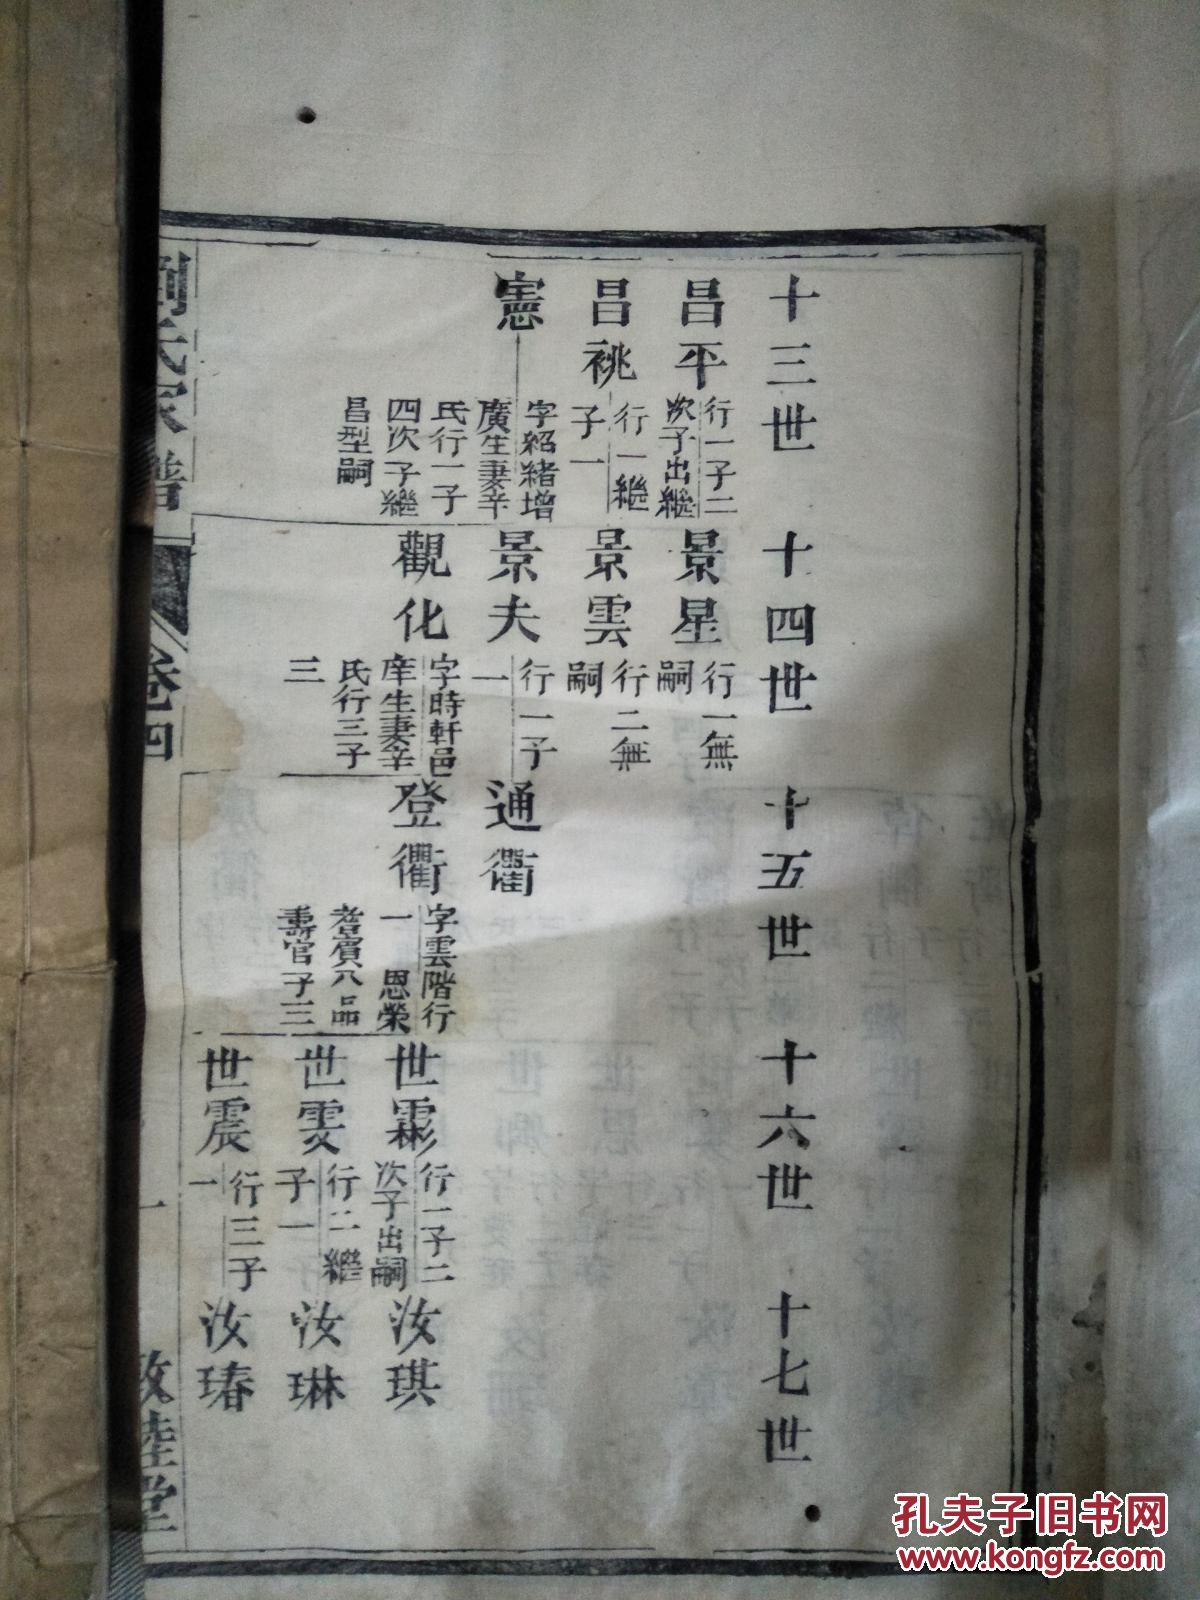 十三世
昌平
行一子二
次子出繼
昌祧
行一繼
子一
憲
字紹緒增
廣生妻辛
氏行一子
四次子繼
昌型嗣
十四世
景星
行一無
嗣
景雲
行二無
嗣
景夫
行一子
一
觀化
字時軒邑
庠生妻辛
氏行三子
三
十五世
通衢
登衢
字雲階行
一 恩榮
耆賓八品
壽官子三
十六世
世霖
行一子二
次子出嗣
世雯
行二繼
子一
世震
行三子
一
十七世
汝琪
汝琳
汝瑃
劉氏家譜
卷四
一
敦睦堂
孔夫子旧书网
www.kongfz.com